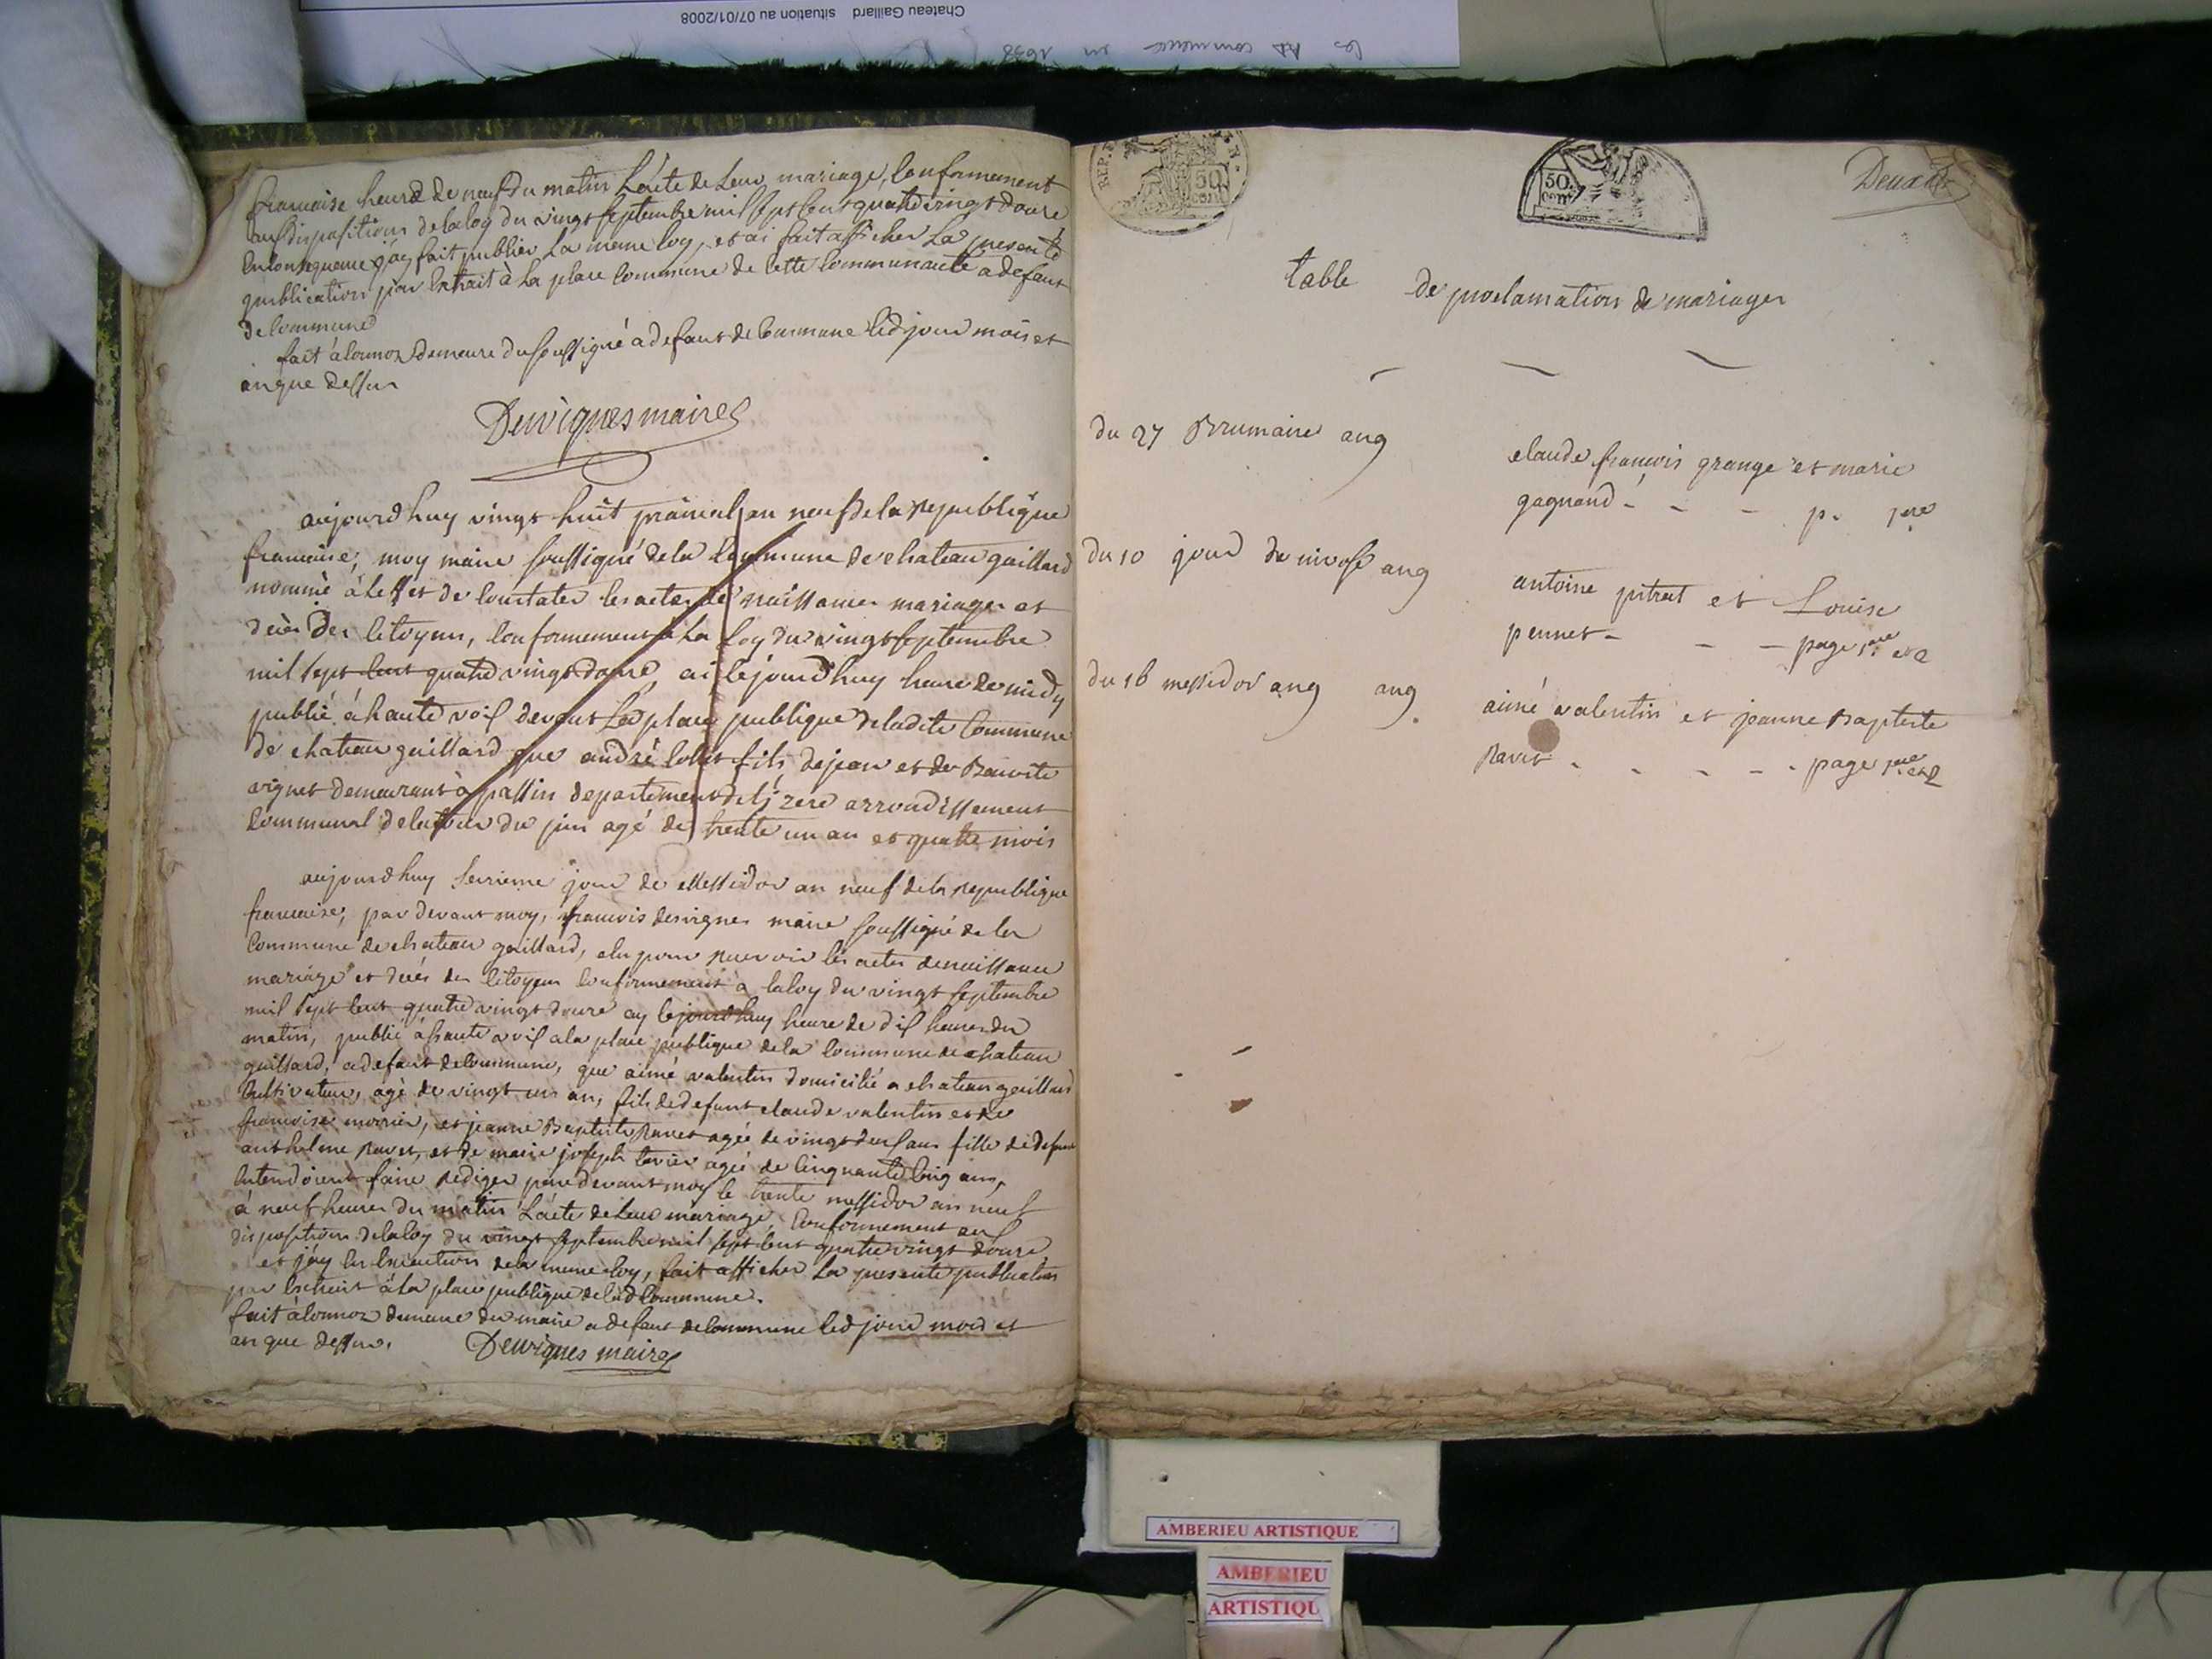 Chateau Gaillard situation au 07/01/2008
en 1638
francaise heure de neuf du matin L'acte de Leur mariage, Conformement
aux dispositions de la loy du vingt septembre mil sept cent quatre vingt douze
En Consequence j'ay fait publier La meme loy, et ai fait afficher La presente
publication par Extrait à la place Commune de Cette Communauté a defaut
de Commune
fait à Cormoz demeure du soussigné a defaut de Commune led jour mois et
an que dessus
Desvignes maire
aujourdhuy vingt huit prairial an neuf de la Republique
francaise, moy maire soussigné de la Commune de chateau gaillard
nommé à Leffet de Constater les actes de naissances mariages et
deces des Citoyens, Conformement a La Loy du vingt septembre
mil sept cent quatre vingt douze, ai Cejourdhuy heure de midy
publié à haute voix devant La place publique de ladite Commune
de chateau gaillard que andré fils de jean et de
vignet demeurant à passin departement de Lizere arrondissement
Communal de la tour du pin agé de trente un an et quatre mois
aujourdhuy seizieme jour de Messidor an neuf de la Republique
francaise, par devant moy, francois desvignes maire soussigné de la
Commune de chateau gaillard, elu pour recevoir les actes de naissance
mariage et deces des Citoyens Conformement à la loy du vingt septembre
mil sept cent quatre vingt douze ay Cejourdhuy heure de dix heures du
matin, publié a haute voix a la place publique de la Commune de chateau
gaillard, a defaut de Commune, que aimé valentin domicilié a chateau gaillard
Cultivateur, agé de vingt un an, fils de defunt claude valentin et de
francoise morrier, et jeanne Baptiste Ravet agée de vingt deux ans fille de defunt
anthelme Ravet, et de marie joseph tavier agée de Cinquante Cinq ans,
Entendoient faire rediger par devant moy le trente messidor an neuf
à neuf heures du matin L'acte de Leur mariage Conformement aux
dispositions de la loy du vingt septembre mil sept cent quatre vingt douze
et j'ay En Execution de la meme loy, fait afficher La presente publication
par Extrait à La place publique de lad Commune.
fait à Cormoz demeure du maire a defaut de Commune led jour mois et
an que dessus. Desvignes maire
REP. F
50
cent
50
cent
Deux
table de proclamation de mariages
du 27 Brumaire an 9
claude francois grange et marie
gagnand - - - p. 1ere
du 10 jour de nivose an 9
antoine pitrat et Louise
pennet - - - page 1ere et 2
du 16 messidor an 9 an 9
aimé valentin et jeanne Baptiste
Ravet - - - - - page 1ere et 2
AMBERIEU ARTISTIQUE
AMBERIEU
ARTISTIQU